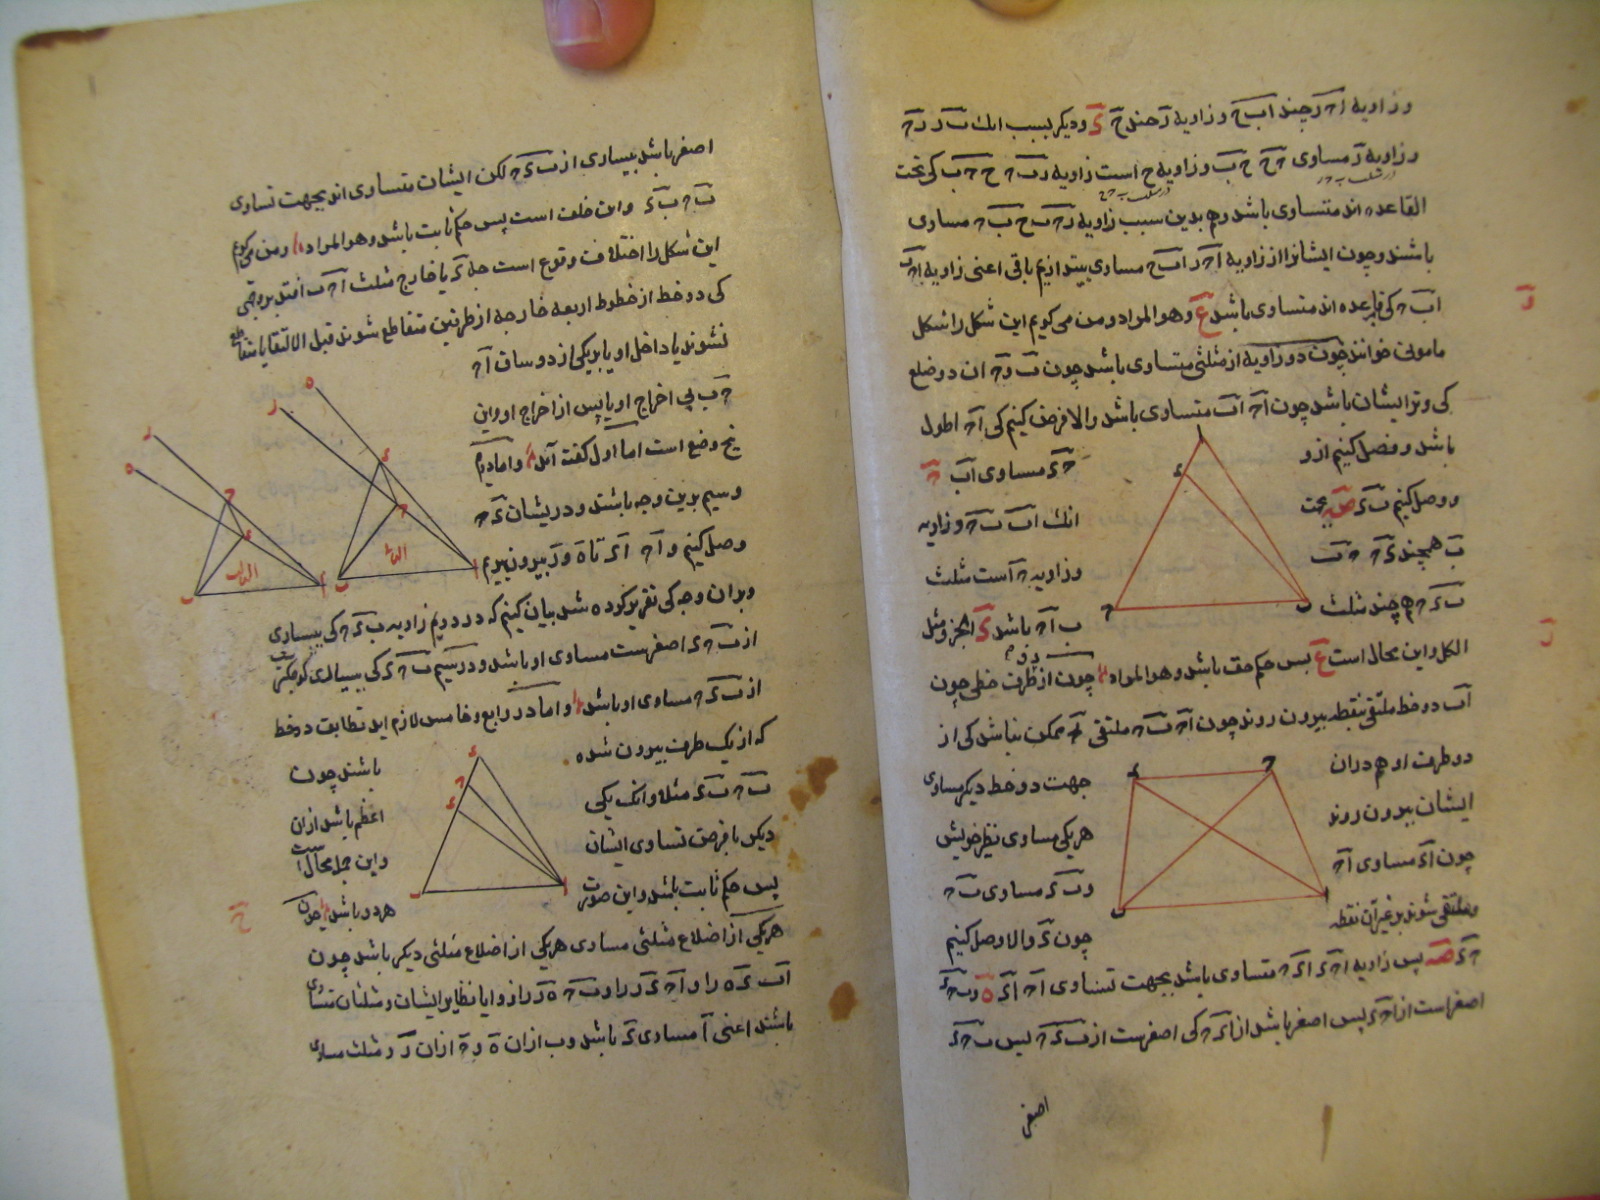 و زاویه اح ر چند اب ح و زاویه ر چند ح ء و دیکر بسبب انك ب ر ر ح
و زاویه ر مساوی ح ح ح ب و زاویه ح است زاویه ر ب ح ح ب کی تحت
القاعده اند متساوی باشد و هم بدین سبب زاویه ر ح ب ح ب ح مساوی
باشند و چون ایشانرا از زاویه اح ر اب ح مساوی بیندازیم باقی اعنی زاویه اح ب
اب ح کی قاعده اند متساوی باشد ع وهو المراد و من می کویم این شکل را شکل
مامونی خوانند چون دو زاویه از مثلثی متساوی باشد چون ب و ح ان دو ضلع
کی وتر ایشان باشد چون اح اب متساوی باشد والا فرض کنیم کی اح اطول
باشد و فصل کنیم ازو
ح ء مساوی اب
و وصل کنیم ب ء
انك اب ب ح و زاویه
ب همچند ء ح ح ب
و زاویه ح است مثلث
ب ء ح هم چند مثلث
ب اح باشد ء الجزو مثل
الکل و این محال است ع پس حکم حق باشد وهو المراد چون از طرف خطی چون
اب دو خط ملتقی بنقطه بیرون روند چون اح ب ح ملتقی ممکن نباشد کی از
دو طرف او هم دران
جهت دو خط دیکر مساوی
ایشان بیرون روند
هر یکی مساوی نظیر خویش
چون اء مساوی اح
و ب ء مساوی ب ح
و ملتقی شوند بر غیر آن نقطه
چون ء والا وصل کنیم
ح ء پس زاویه اح ء اء ح متساوی باشد بجهت تساوی اح اء ه و ب ح ء
اصغر است از اح ء پس اصغر باشد از اء ح کی اصغرست از ب ء ح پس ب ح ء
اصغر
اصغر باشد ببسیاری از ب ء ح لکن ایشان متساوی اند بجهت تساوی
ب ح ب ء و این خلف است پس حکم ثابت باشد وهو المراد و من می کویم
این شکل را اختلاف وقوع است چه ء یا خارج مثلث اح ب افتد بر وجهی
کی دو خط از خطوط اربعه خارجه از طرفین متقاطع شوند قبل الالتقا یا متقاطع
نشوند یا داخل او یا بر یکی از دو ساق اح
ح ب بی اخراج او یا پس از اخراج او و این
پنج وضع است اما اول کفته آمد و اما دوم
و سیم برین وجه باشد و در یشان ء ح
وصل کنیم و اح اء تا ه و ر بیرون بریم
و بران وجه کی تقریر کرده شد بیان کنیم که در دویم زاویه ب ء ح کی ببسیاری
از ب ح ء اصغرست مساوی او باشد و در سیم ب ح ء کی ببسیاری کوچکتر
از ب ء ح مساوی او باشد و اما در رابع و خامس لازم اید تطابق دو خط
که از یك طرف بیرون شده
باشند چون
ب ح ب ء مثلا و انك یکی
اعظم باشد ازان
دیکر با فرض تساوی ایشان
و این جمله محال است
پس حکم ثابت باشد و این صورت
هر دو باشد چون
هر یکی از اضلاع مثلثی مساوی هر یکی از اضلاع مثلثی دیکر باشد چون
اب ء ه را و اح ء ر را و ب ح ه ر را زوایا نظایر ایشان و مثلثان متساوی
باشند اعنی ا مساوی ء باشد و ب ازان ه و ح ازان ر و مثلث مساوی